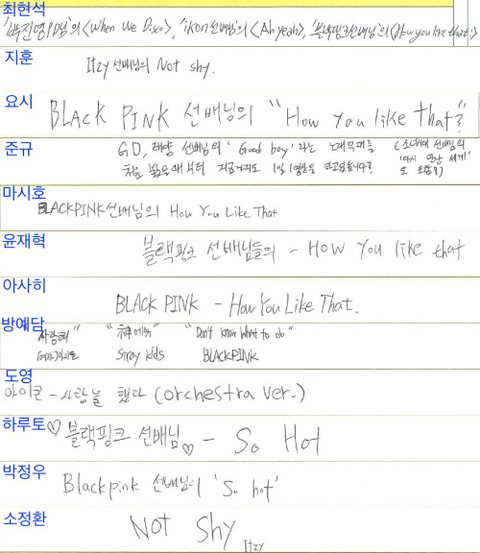 최현석
'박진영PD님'의 <When We Disco>, 'iKON선배님'의 <Ah yeah>, '블랙핑크선배님'의 <How you like that>!
지훈
Itzy 선배님의 Not shy.
요시
BLACK PINK 선배님의 "How You like that?"
준규
GD, 태양 선배님의 'Good boy' 라는 노래무대를 (소녀시대 선배님의
처음 봤을때부터 지금까지도 1일 1영상을 하고있습니다? '다시 만난 세계'
도 포함!!)
마시호
BLACKPINK선배님의 How You Like That
윤재혁
블랙핑크 선배님들의 - How you like that
아사히
BLACK PINK - How You Like That.
방예담
사랑해" "神메뉴" "Don't know What to do"
Stray kids BLACKPINK
도영
아이콘 - 사랑을 했다 (orchestra ver.)
하루토♡ 블랙핑크 선배님♡ - So Hot
박정우
Blackpink 선배님의 'So hot'
소정환
Not Shy Itzy